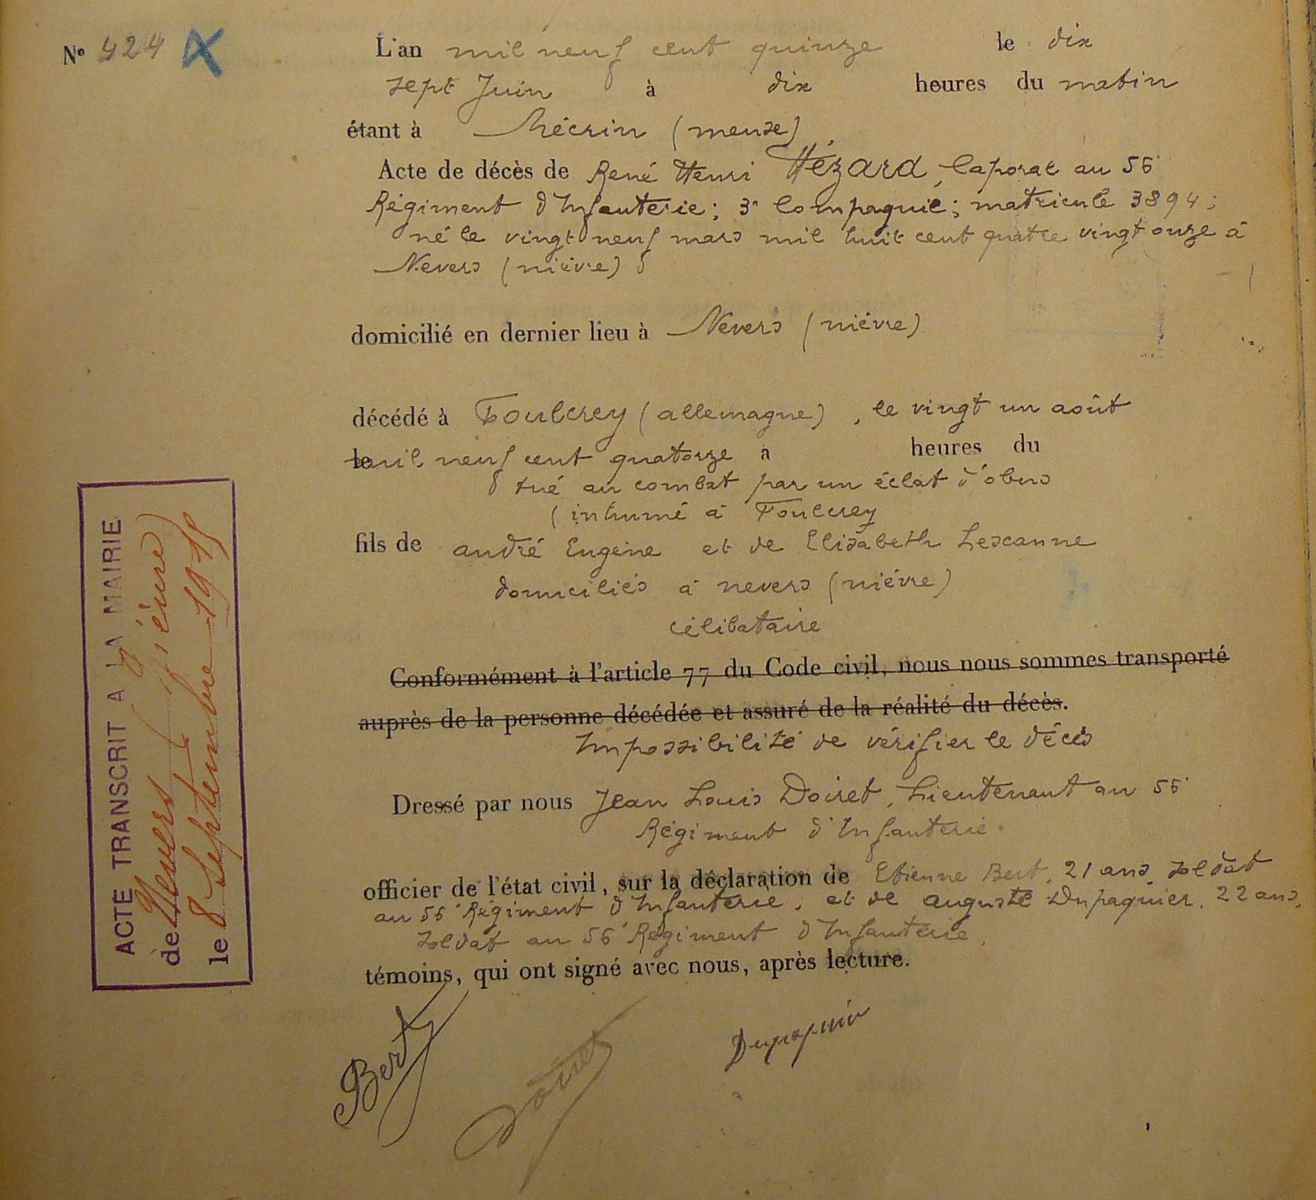 N° 424
L'an mil neuf cent quinze le dix
sept Juin à dix heures du matin
étant à Mécrin (meuse)
Acte de décès de René Henri Hézard, Caporal au 56e
Régiment d'Infanterie; 3e Compagnie; matricule 3894;
né le vingt neuf mars mil huit cent quatre vingt onze à
Nevers (nièvre)
domicilié en dernier lieu à Nevers (nièvre)
décédé à Foulcrey (allemagne), le vingt un août
le mil neuf cent quatorze à heures du
tué au combat par un éclat d'obus
(inhumé à Foulcrey
fils de andré Eugène et de Elisabeth Lescanne
domiciliés à nevers (nièvre)
célibataire
Conformément à l'article 77 du Code civil, nous nous sommes transporté
auprès de la personne décédée et assuré de la réalité du décès.
Impossibilité de vérifier le décès
Dressé par nous Jean Louis Doiret, Lieutenant au 56e
Régiment d'Infanterie.
officier de l'état civil, sur la déclaration de Etienne Bert, 21 ans, soldat
au 56e Régiment d'Infanterie, et de auguste Dupaquier, 22 ans,
soldat au 56e Régiment d'Infanterie,
témoins, qui ont signé avec nous, après lecture.
Bert
Doiret
Dupaquier
ACTE TRANSCRIT A LA MAIRIE
de Nevers (Nièvre)
le 8 Septembre 1915